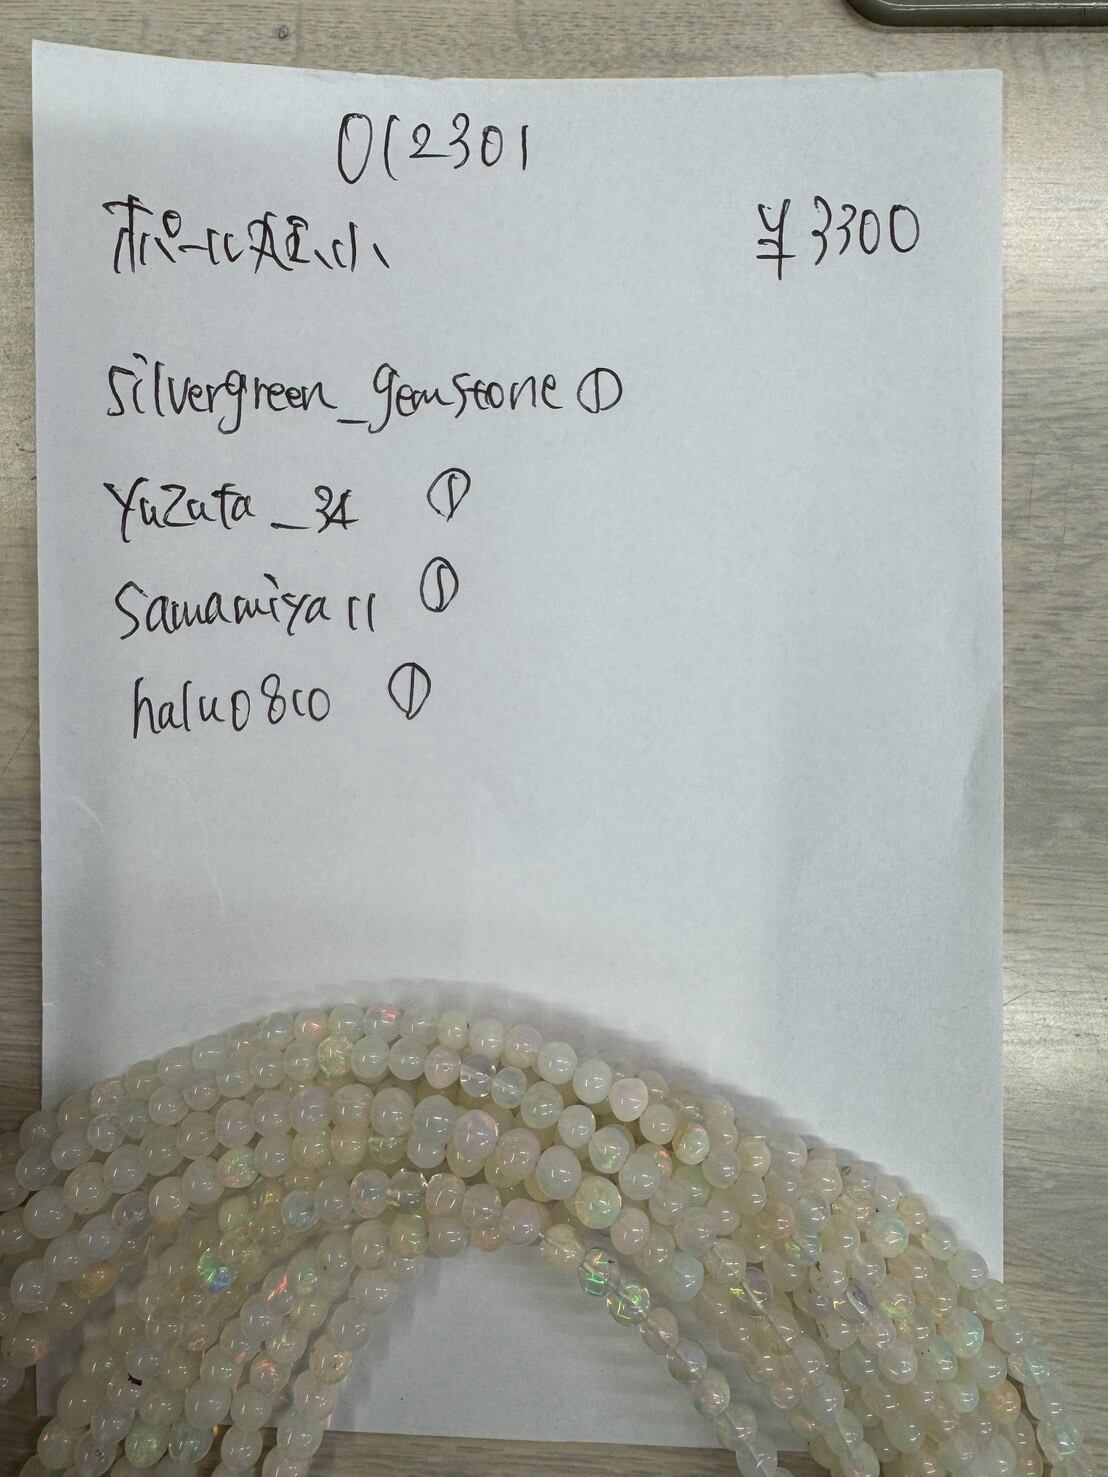 012301
ボール短小 ¥3300
silvergreen_gemstone ①
Yuzuta_34 ①
Samamiya11 ①
halu0810 ①